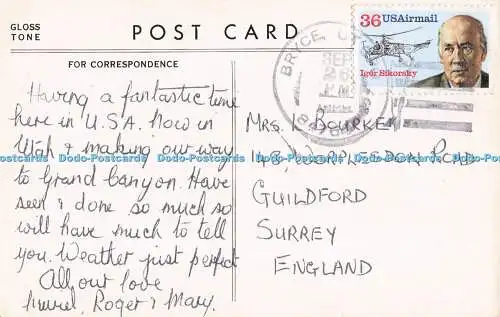 GLOSS
TONE
POST CARD
36 USAirmail
Igor Sikorsky
BRYCE,
SEP
26
FOR CORRESPONDENCE
Having a fantastic time
here in U.S.A. Now in
Utah & making our way
to Grand Canyon. Have
seen & done so much so
will have much to tell
you. Weather just perfect
All our love
Muriel, Roger & Mary.
Mrs. K BOURKE
WORPLESDON ROAD
GUILDFORD
SURREY
ENGLAND
Dodo-Postcards Dodo-Postcards Dodo-Postcards Dodo-Postcards